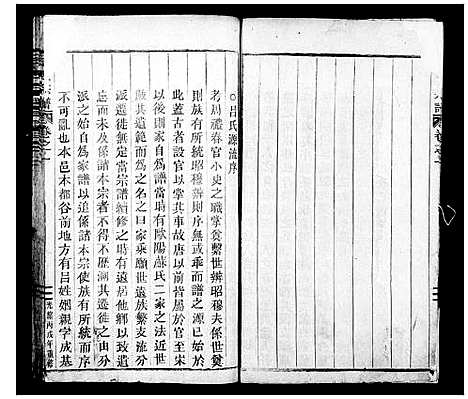 ○呂氏源流序
考周禮春官小史之職掌奠繫世辨昭穆夫係世奠
則族有所統昭穆辨則序無或乖而譜之源已始於
此葢古者設官以掌其事故唐以前皆屬於官至宋
以後則家自爲家譜當時有歐陽蘇氏二家之法近世
傲其遺範而宗譜之曰家乘顧世族繁支流分
派遷徙無定當宗譜續修之時有遠居他鄉以致遺
漏而未係諸本宗者不得不歷溯其遷徙之由分
派之始自爲家譜以追係諸本宗使族有所統而序
不可亂也本邑木都谷前地方有呂姓姻親学成基
光緒丙戌年重修
宗譜 卷之一
譜 卷之一